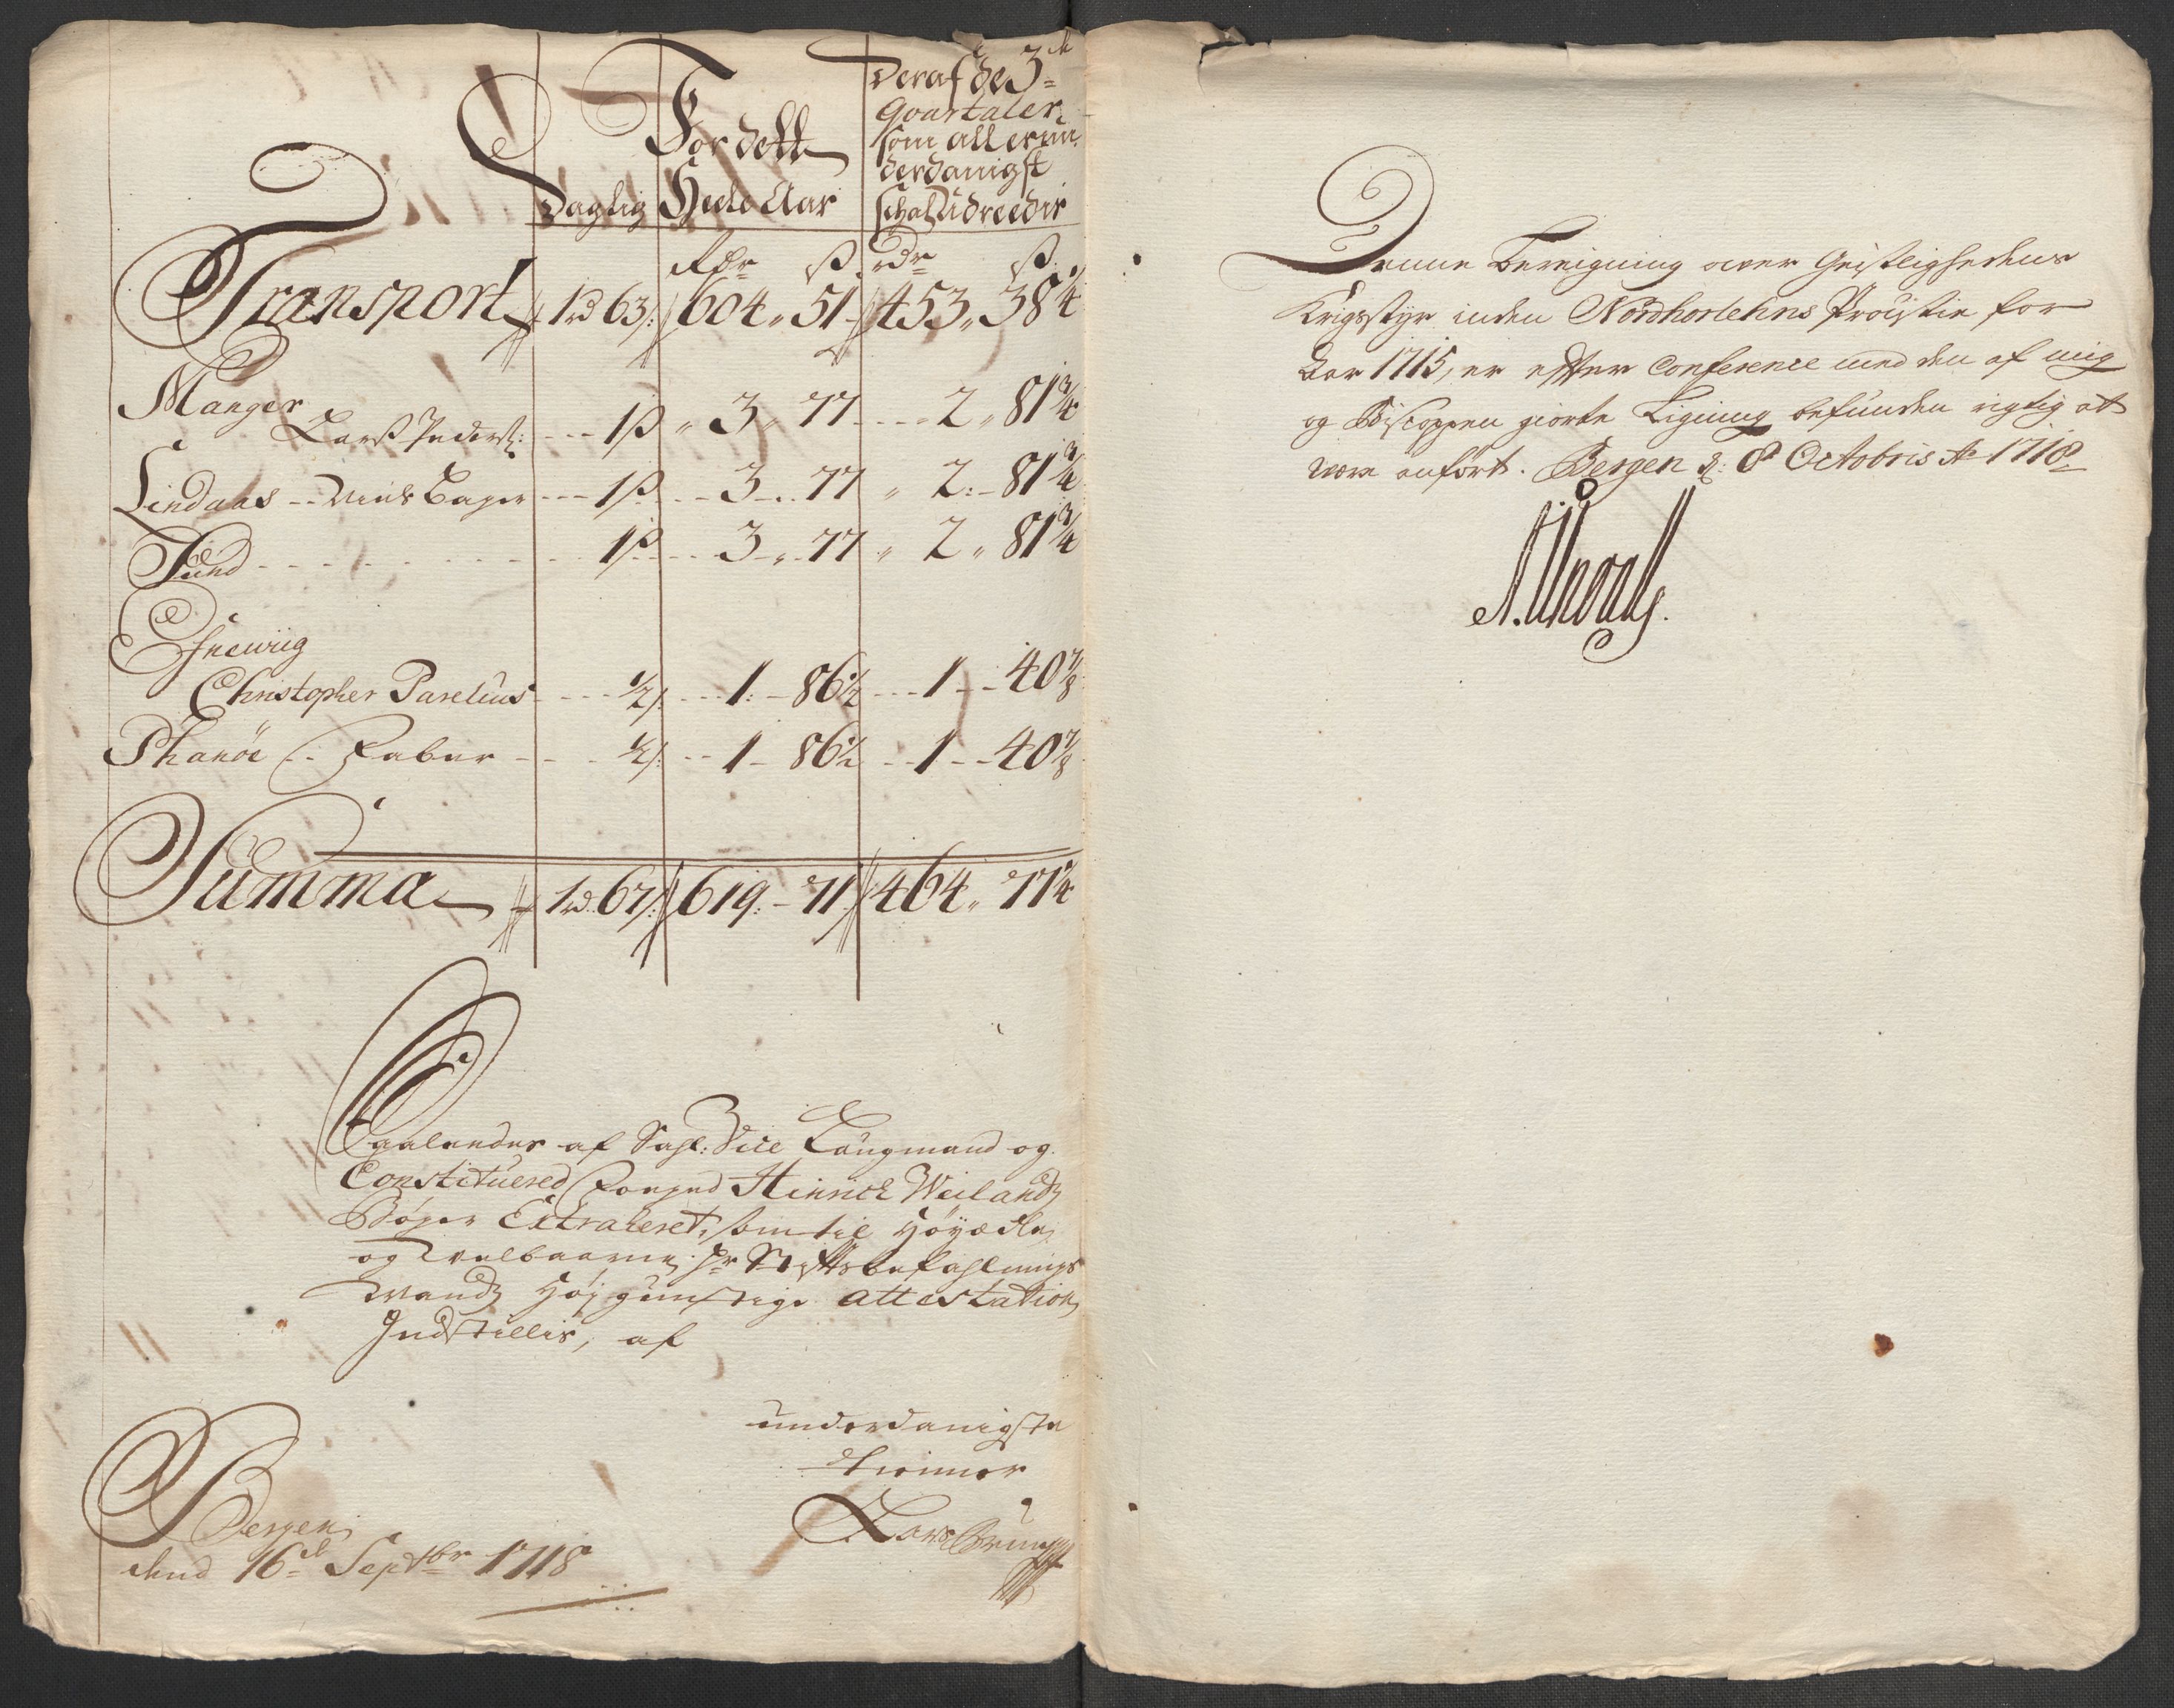 Daglig
For dett
Heele Aar
Deraf de 3de
Qvartaler
som allerun-
derdanigst
schal Udreedis
Rdr ß rdr ß
Transport 1rd 63ß 604 " 51 453 " 38 1/4
Manger
Lars Peders: --- 1ß " 3 " 77 --- 2 " 81 3/4
Lindaas -- Niels Bager --- 1ß --- 3 -- 77 " 2 - 81 3/4
Sund --- 1ß --- 3 " 77 " 2 " 81 3/4
Christopher Parelius --- 1/2ß --- 1 - 86 1/2 --- 1 -- 40 7/8
Phanöe -- Faber --- 1/2ß -- 1 - 86 1/2 -- 1 -- 40 7/8
Summa 1rd 67ß 619 - 71 464 " 77 1/4
af Sahl: Vice Laugmand og
Constituered Foged Hinrich Weilands
Bøger Extraheret, som til Höyædle
og Welbaarne Hr Stiftsbefahlings
Mands Høygunstige attestation
Indstillis, af
underdanigste
tienner
Lars
Bergen
dend 16de Septbr 1718
Denne Bereigning over Geistlighedens
Krigsstyr inden Nordhorlehns Proustie for
Aar 1715, er efter Conference med den af mig
og Biscoppen giorte Ligning befunden rigtig at
være anført. Bergen d: 8 Octobris Ao 1718